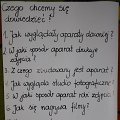 Czego chcemy się
dowiedzieć?
1. Jak wyglądały aparaty dawniej?
2. W jaki sposób aparat drukuje
zdjęcia?
3. Z czego zbudowany jest aparat?
4. Jak wygląda studio fotograficzne?
5. W jaki sposób aparat robi zdjęcia?
6. Jak się nagrywa filmy?